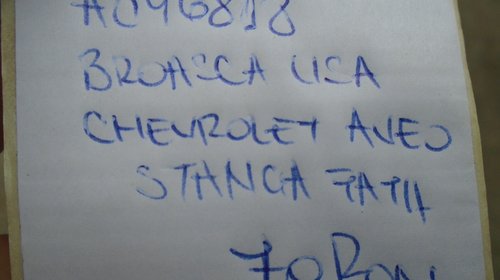 AC96818
BROASCA USA
CHEVROLET AVEO
STANGA FATA
70 RON